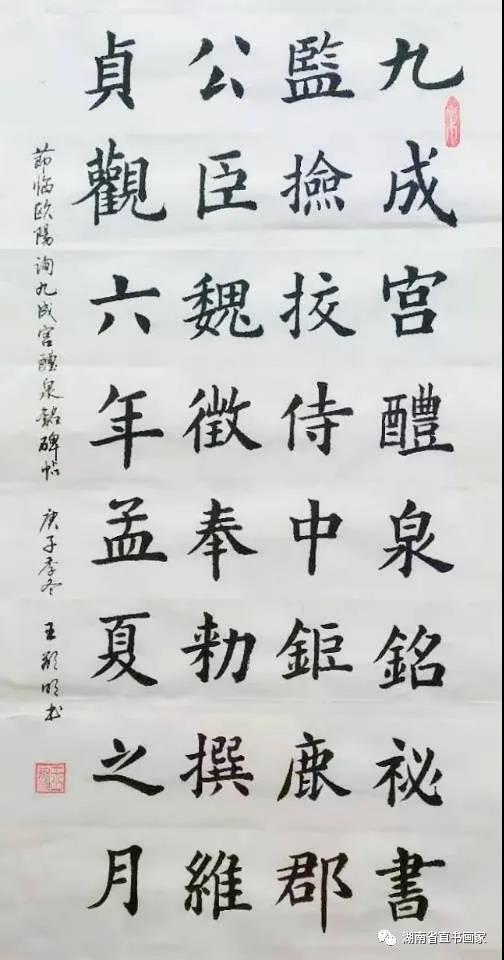 九成宫醴泉銘祕書
監撿挍侍中鉅鹿郡
公臣魏徵奉勑撰維
貞觀六年孟夏之月
节临欧陽询九成宫醴泉銘碑帖 庚子季冬 王 明书
湖南省直书画家